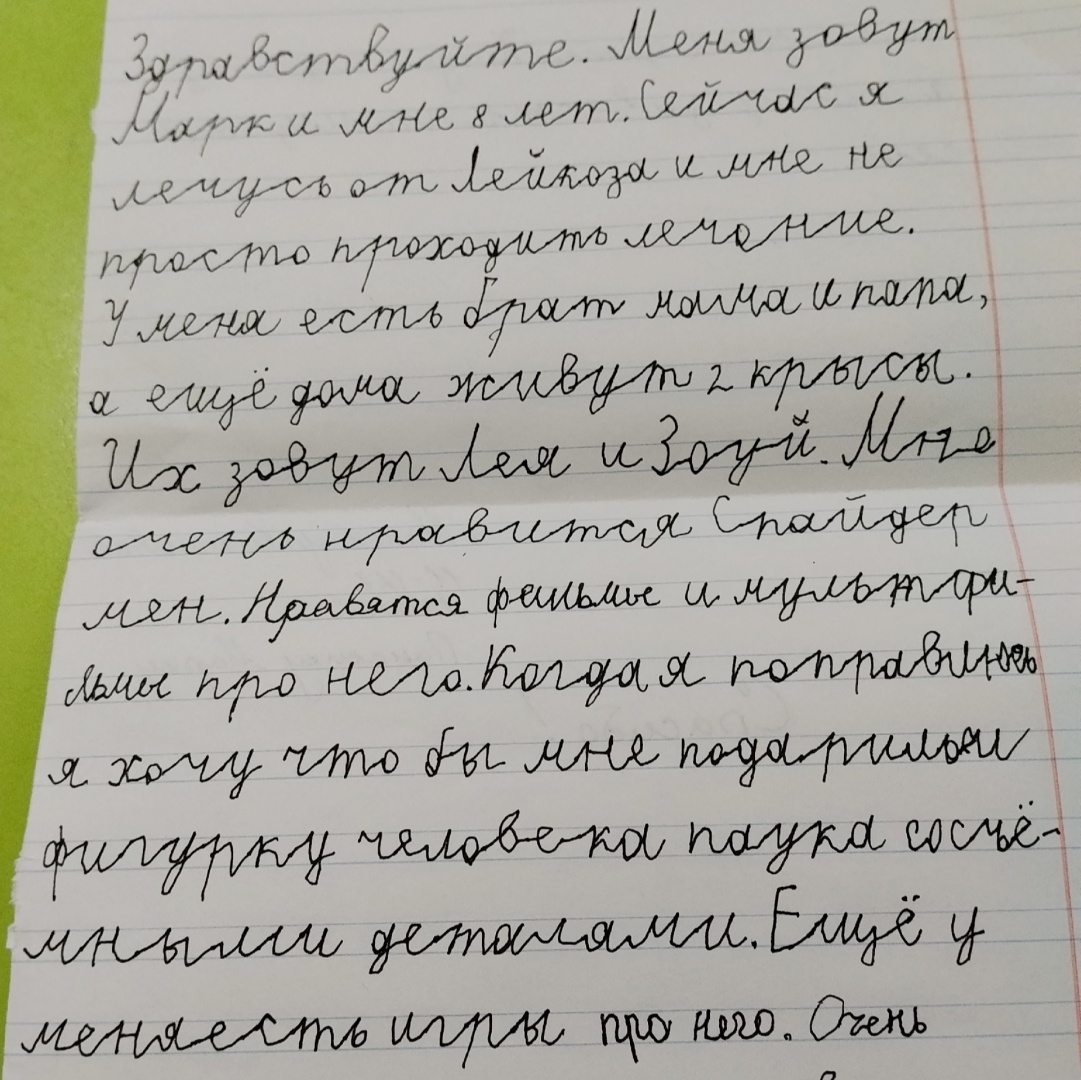 Здравствуйте. Меня зовут
Марк и мне 8 лет. Сейчас я
лечусь от Лейкоза и мне не
просто проходить лечение.
У меня есть брат мама и папа,
а ещё дома живут 2 крысы.
Их зовут Лея и Зоуй. Мне
очень нравится Спайдер
мен. Нравятся фильмы и мультфи-
льмы про него. Когда я поправлюсь
я хочу что бы мне подарили
фигурку человека паука сосъё-
мными деталями. Ещё у
меня есть игры про него. Очень